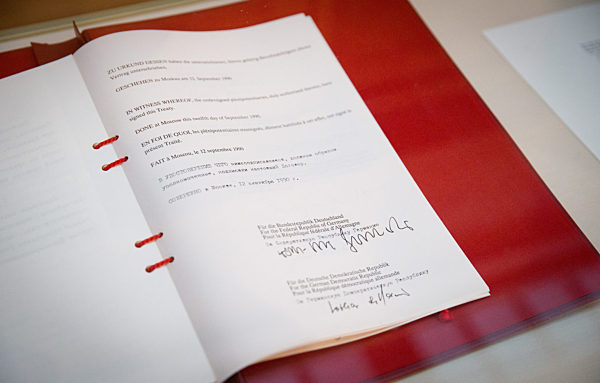 ZU URKUND DESSEN haben die unterzeichneten, hierzu gehörig Bevollmächtigten diesen
Vertrag unterzeichnet.
GESCHEHEN zu Moskau am 12. September 1990
IN WITNESS WHEREOF, the undersigned plenipotentiaries, duly authorized thereto, have
signed this Treaty.
DONE at Moscow this twelfth day of September 1990.
EN FOI DE QUOI, les plénipotentiaires soussignés, dûment habilités à cet effet, ont signé le
présent Traité.
FAIT à Moscou, le 12 septembre 1990
В УДОСТОВЕРЕНИЕ ЧЕГО нижеподписавшиеся, должным образом
уполномоченные, подписали настоящий Договор.
СОВЕРШЕНО в Москве, 12 сентября 1990 г.
Für die Bundesrepublik Deutschland
For the Federal Republic of Germany
Pour la République fédérale d'Allemagne
За Федеративную Республику Германию
Für die Deutsche Demokratische Republik
For the German Democratic Republic
Pour la République démocratique allemande
За Германскую Демократическую Республику